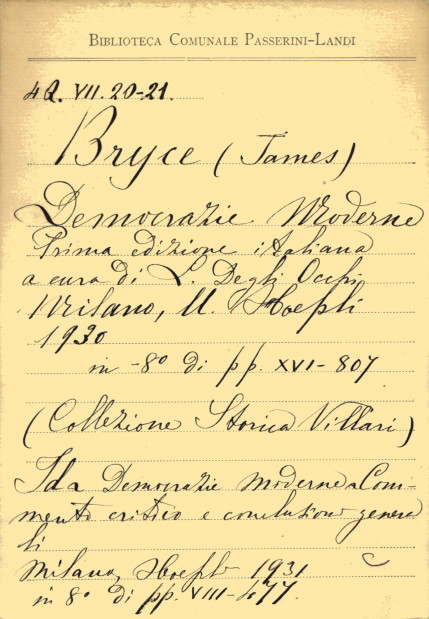 BIBLIOTECA COMUNALE PASSERINI-LANDI
4Q. VII. 20-21.
Bryce (James)
Democrazie Moderne
Prima edizione italiana
a cura di L. Degli Occhi
Milano, U. Hoepli
1930
in -8° di pp. XVI-807
(Collezione Storica Villari)
Id a Democrazie moderne a Com-
mento critico e conclusioni genera
li
Milano, Hoepli 1931
in 8° di pp. VIII-477.